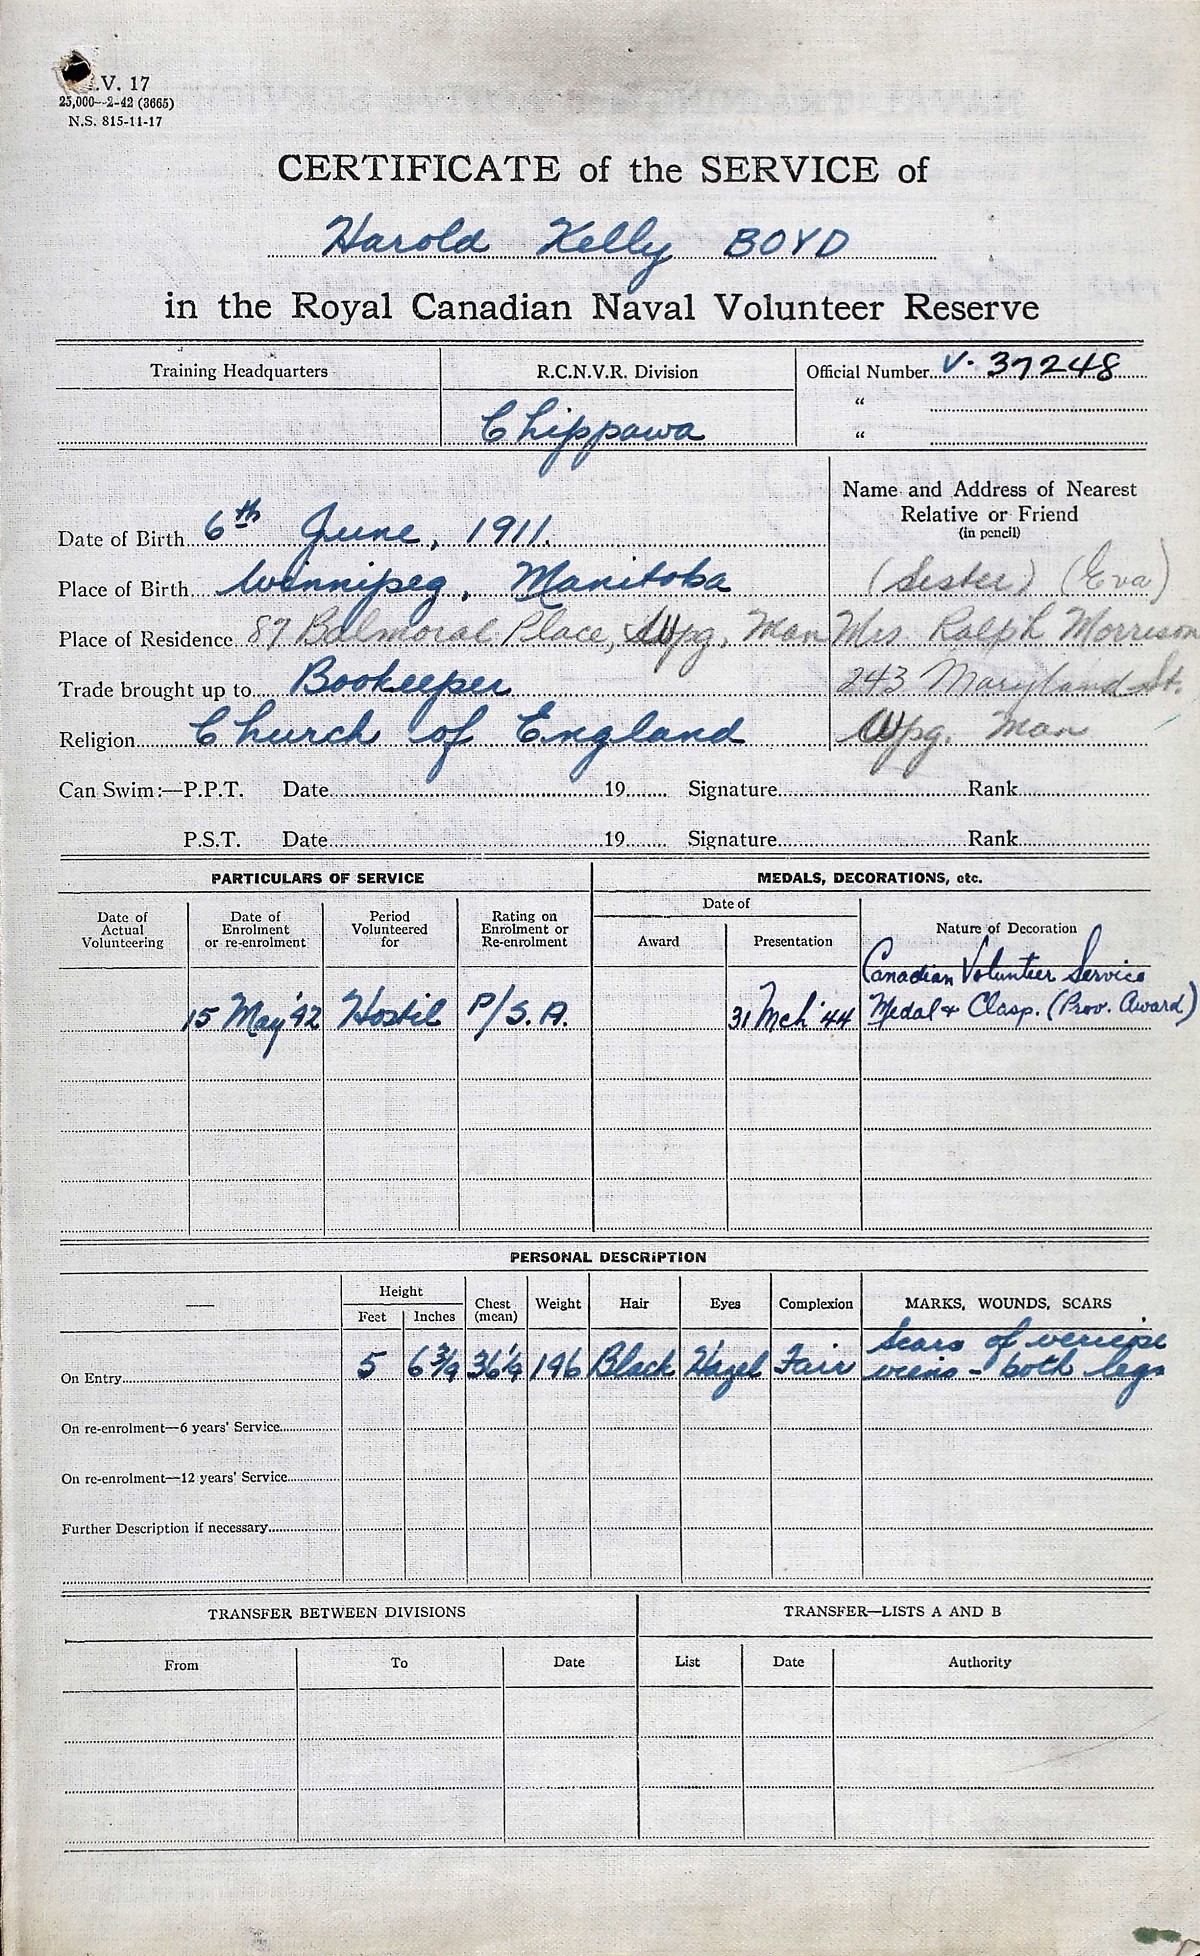 .V. 17
25,000—2-42 (3665)
N.S. 815-11-17
CERTIFICATE of the SERVICE of
Harold Kelly BOYD
in the Royal Canadian Naval Volunteer Reserve
Training Headquarters R.C.N.V.R. Division Official Number V. 37248
Chippawa “
“
Name and Address of Nearest
Relative or Friend
(in pencil)
Date of Birth 6th June, 1911.
Place of Birth Winnipeg, Manitoba (Sister) (Eva)
Place of Residence 87 Balmoral Place, Wpg, Man Mrs Ralph Morrison
Trade brought up to Bookeeper 243 Maryland St.
Religion Church of England Wpg. Man
Can Swim:—P.P.T. Date 19 Signature Rank
P.S.T. Date 19 Signature Rank
PARTICULARS OF SERVICE MEDALS, DECORATIONS, etc.
Date of Actual Volunteering Date of Enrolment or re-enrolment Period Volunteered for Rating on Enrolment or Re-enrolment Date of Award Presentation Nature of Decoration
Canadian Volunteer Service
15 May '42 Hostil P/S.A. 31 Mch '44 Medal & Clasp. (Prov. Award)
PERSONAL DESCRIPTION
— Height Feet Inches Chest (mean) Weight Hair Eyes Complexion MARKS, WOUNDS, SCARS
Scars of vericose
On Entry 5 6 3/4 36 1/4 196 Black Hazel Fair veins - both legs
On re-enrolment—6 years' Service
On re-enrolment—12 years' Service
Further Description if necessary
TRANSFER BETWEEN DIVISIONS TRANSFER—LISTS A AND B
From To Date List Date Authority